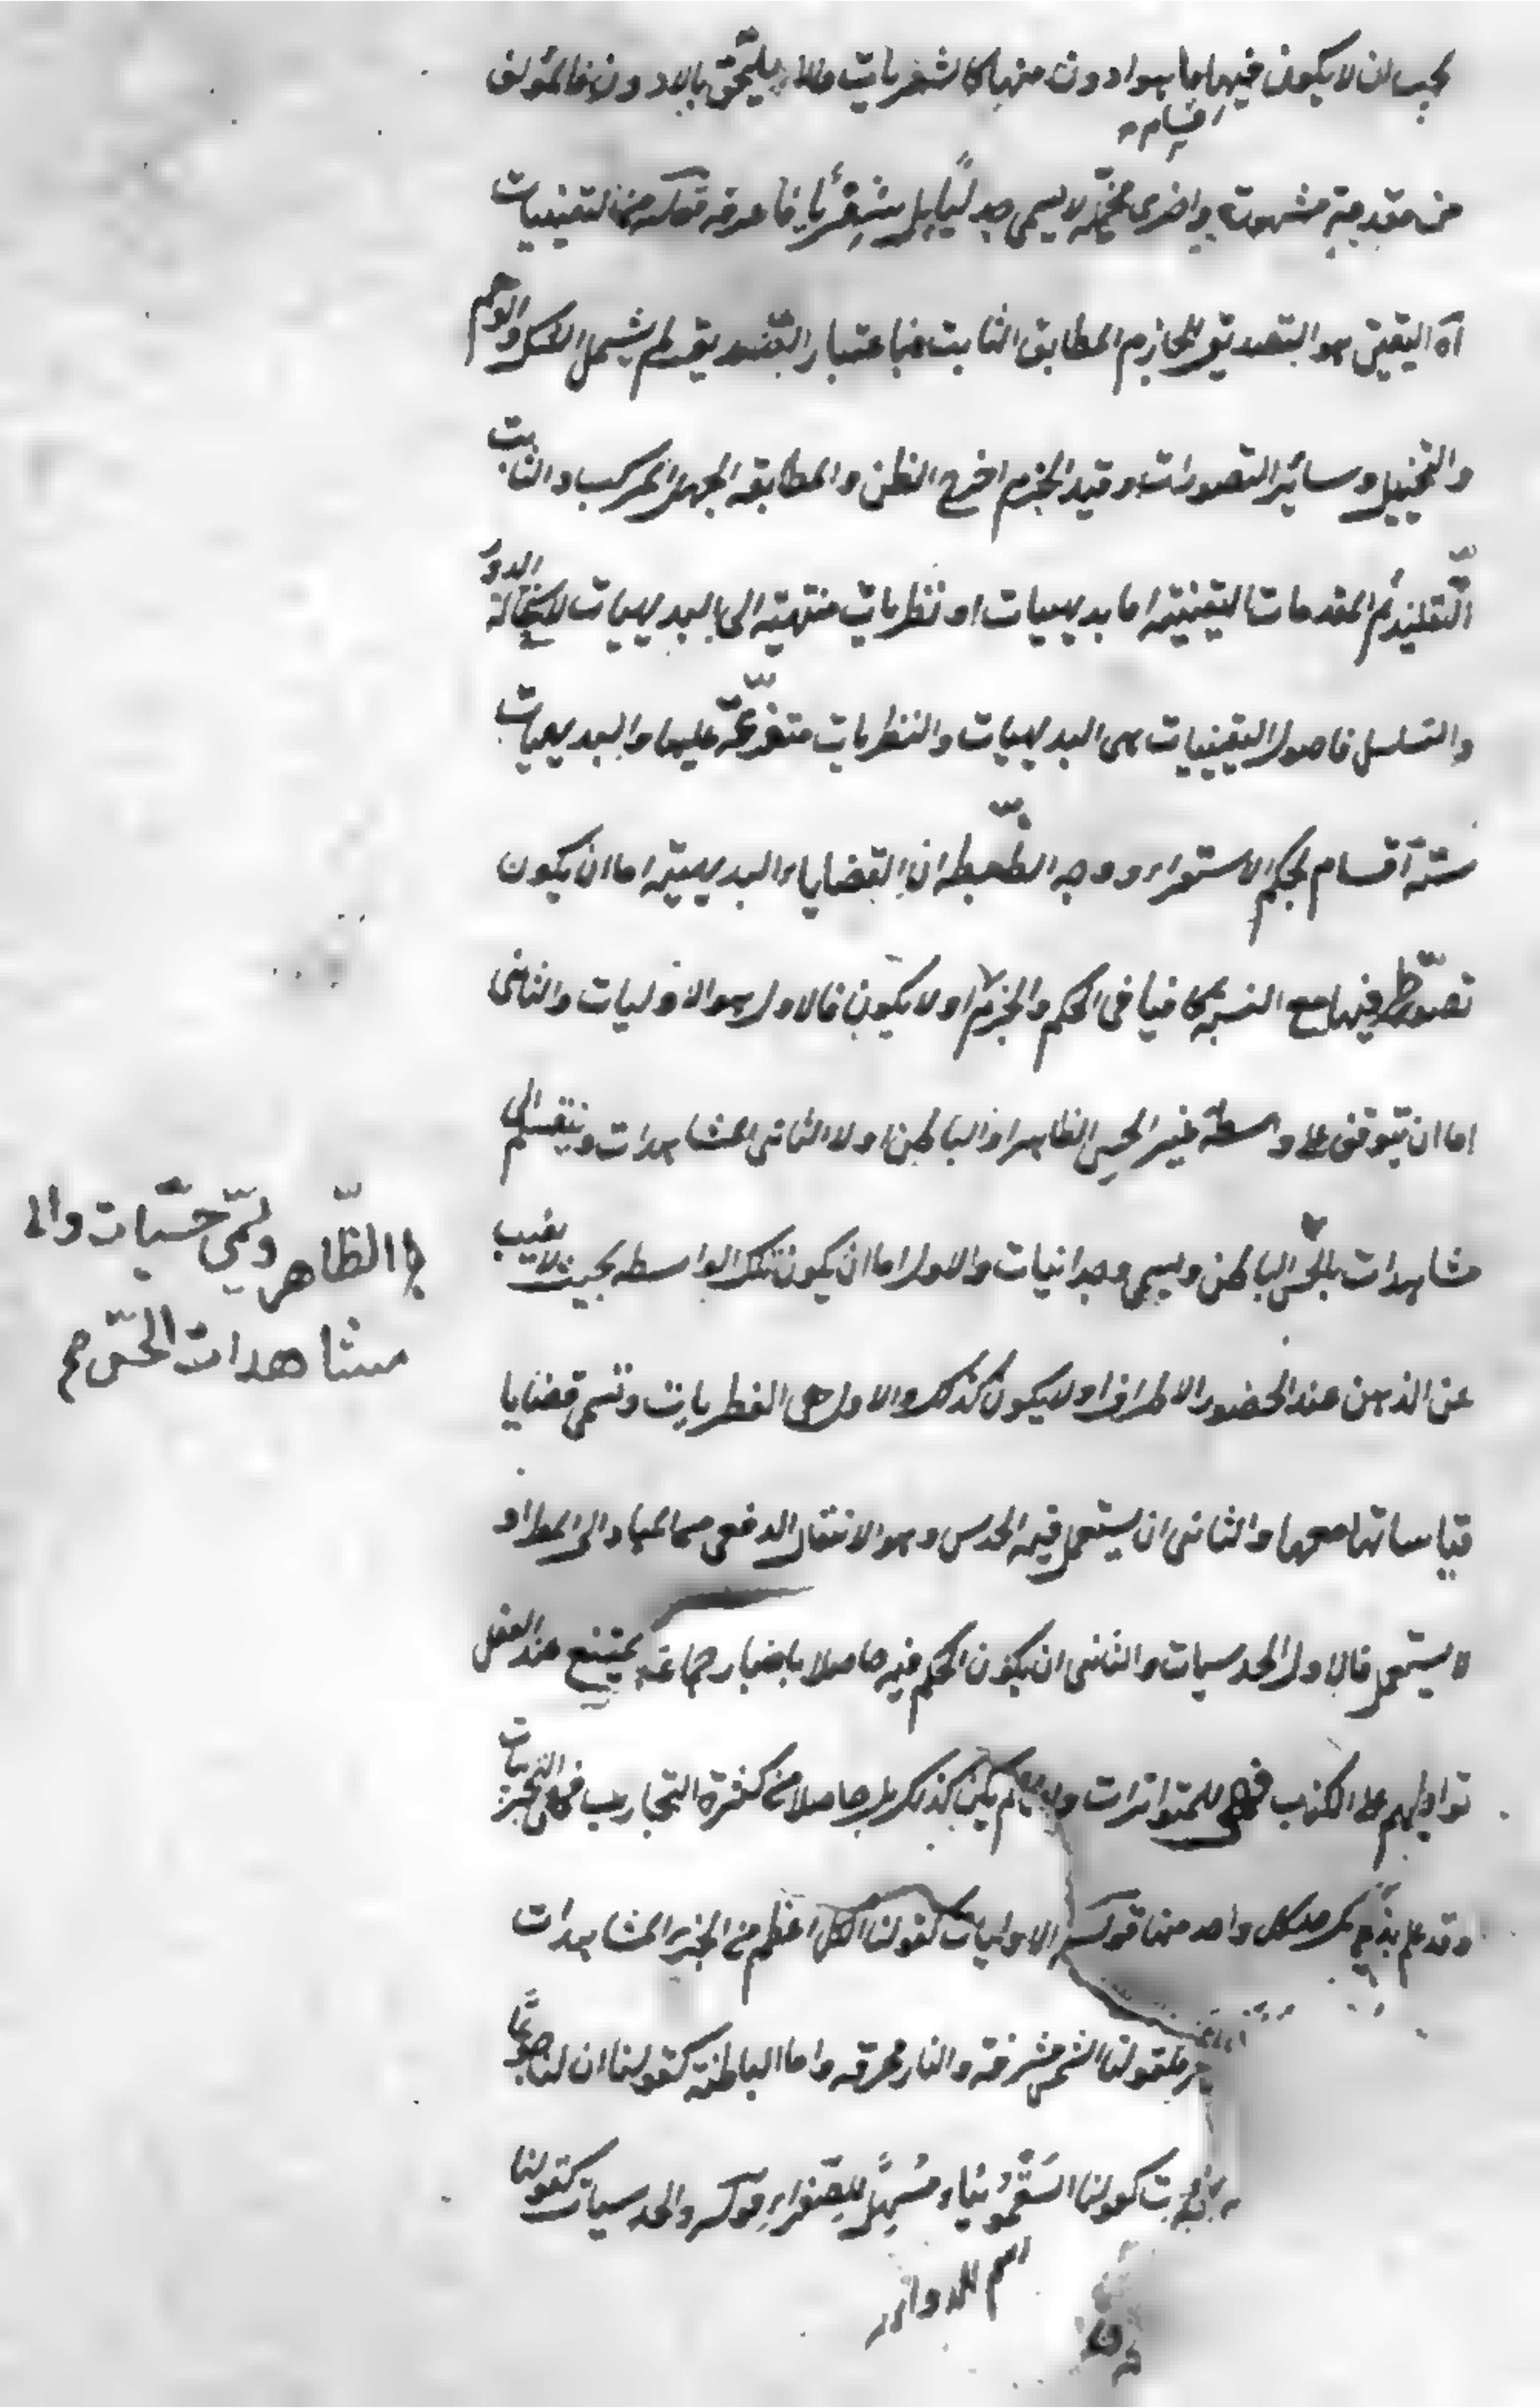 يجب ان لا يكون فيها ما هو ادون منها كالشعريات والا يلتحق بالادون فالمؤلف
من مقدمة مشهورة واخرى مخيلة لا يسمى جدليا بل شعريا فاعرفه قوله من اليقينيات
اه اليقين هو التصديق الجازم المطابق الثابت فباعتبار التصديق لم يشمل الشك والوهم
والتخييل وسائر التصورات وقيد الجزم اخرج الظن والمطابقة الجهل المركب والثابت
التقليد ثم المقدمات اليقينية اما بديهيات او نظريات منتهية الى البديهيات لاستحالة الدور
والتسلسل فاصول اليقينيات هى البديهيات والنظريات متفرعة عليها والبديهيات
ستة اقسام بحكم الاستقراء ووجه الضبط ان القضايا البديهية اما ان يكون
تصور طرفيها مع النسبة كافيا فى الحكم والجزم او لا يكون فالاول هو الاوليات والثانى
اما ان يتوقف على واسطة غير الحس الظاهر او الباطن او لا الثانى المشاهدات وينقسم الى
مشاهدات بالحس الباطن ويسمى وجدانيات والاول اما ان يكون تلك الواسطة بحيث لا يغيب
الظاهر وتسمى حسيات والى
مشاهدات الحس صح
عن الذهن عند الحضور الاطراف او لا يكون كذلك والاول هى الفطريات وتسمى قضايا
قياساتها معها والثانى ان يستعمل فيه الحدس وهو الانتقال الدفعى من المبادى الى المط او
لا يستعمل فالاول الحدسيات والثانى ان يكون الحكم فيه حاصلا باخبار جماعة يمتنع عند العقل
تواطئهم على الكذب فهى المتواترات لم يكن كذلك بل حاصلا من كثرة التجاريب فهى التجربيات
وقد علم بذلك حد كل واحد منها قوله الاوليات كقولنا الكل اعظم من الجزء المشاهدات
كقولنا الشمس مشرقة والنار محرقة واما الباطنة كقولنا ان لنا جوعا
كقولنا السقمونياء مسهل للصفراء قوله والحدسيات كقولنا